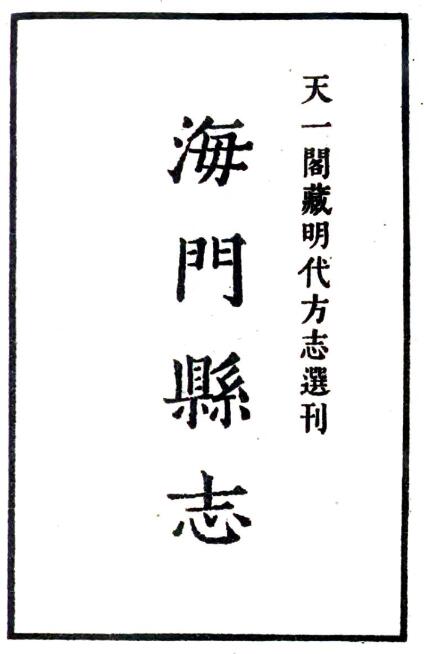 天一閣藏明代方志選刊
海門縣志